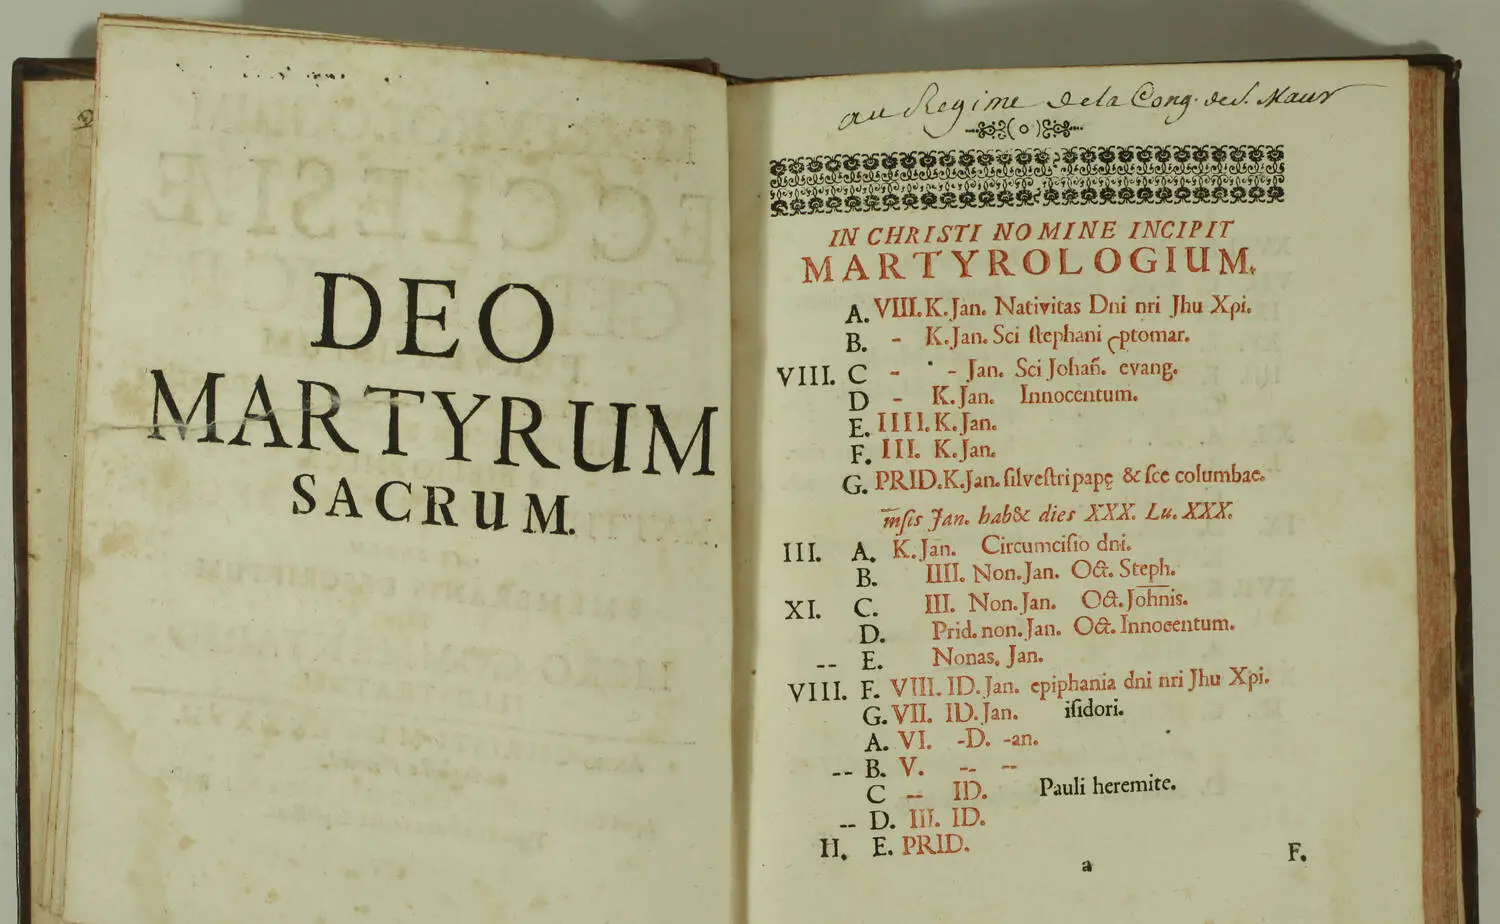 DEO
MARTYRUM
SACRUM.
au Regime de la Cong. de S. Maur
IN CHRISTI NOMINE INCIPIT
MARTYROLOGIUM.
A. VIII. K. Jan. Nativitas Dni nri Jhu Xpi.
B. - K. Jan. Sci ſtephani ptomar.
VIII. C - - Jan. Sci Johañ. evang.
D - K. Jan. Innocentum.
E. IIII. K. Jan.
F. III. K. Jan.
G. PRID. K. Jan. ſilveſtri papę & ſce columbae.
m̅ſis Jan. hab& dies XXX. Lu. XXX.
III. A. K. Jan. Circumciſio dni.
B. IIII. Non. Jan. Oct. Steph.
XI. C. III. Non. Jan. Oct. Johnis.
D. Prid. non. Jan. Oct. Innocentum.
-- E. Nonas. Jan.
VIII. F. VIII. ID. Jan. epiphania dni nri Jhu Xpi.
G. VII. ID. Jan. iſidori.
A. VI. -D. -an.
-- B. V. -- --
C -- ID. Pauli heremite.
-- D. III. ID.
II. E. PRID.
a F.